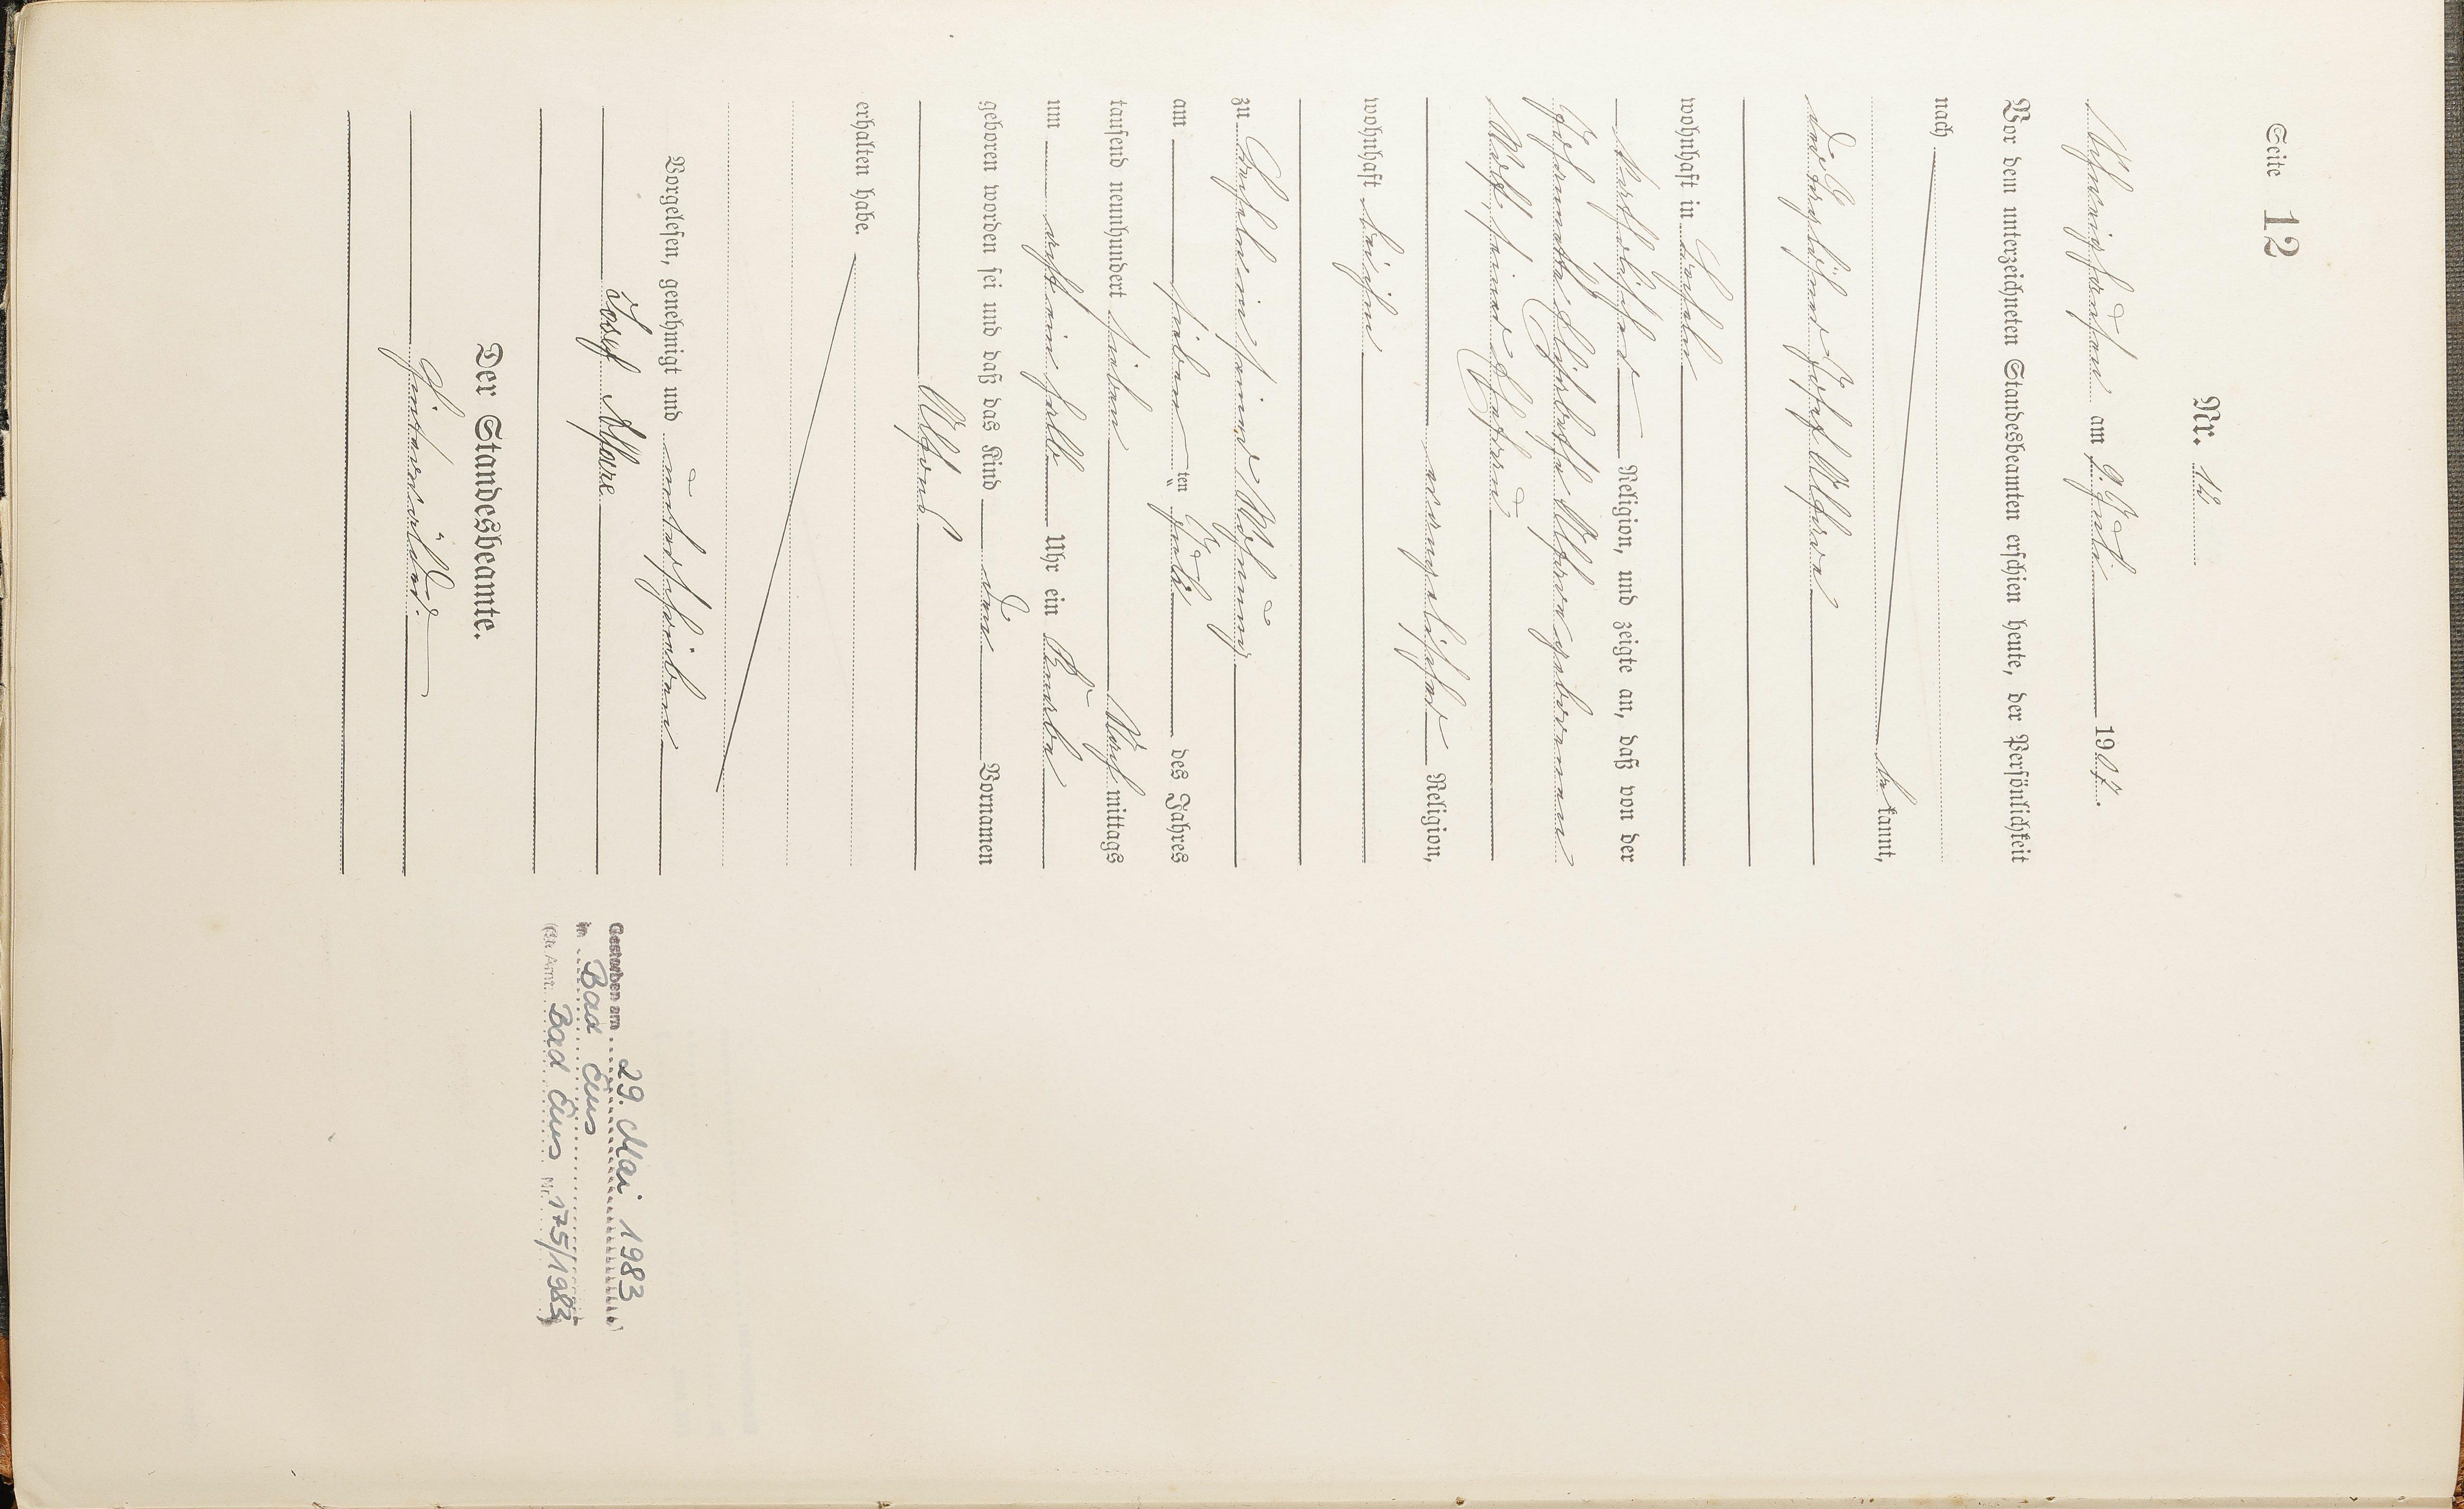 Seite 12
Nr. 12
am 9. Juli 1907.
Vor dem unterzeichneten Standesbeamten erschien heute, der Persönlichkeit
nach
bekannt,
der Josef Alfare
wohnhaft in
katholischer Religion, und zeigte an, daß von der
Elisabetha Alfare geborenen
seiner Ehefrau
evangelischer Religion,
wohnhaft bei ihm
zu in seiner Wohnung
am sieben ten Juli des Jahres
tausend neunhundert sieben Nachmittags
um acht ein halb Uhr ein Knabe
geboren worden sei und daß das Kind den Vornamen
Alfons
erhalten habe.
Vorgelesen, genehmigt und unterschrieben
Josef Alfare
Der Standesbeamte.
Gestorben am 29. Mai 1983
in Bad Ems
Bad Ems Nr. 175/1983